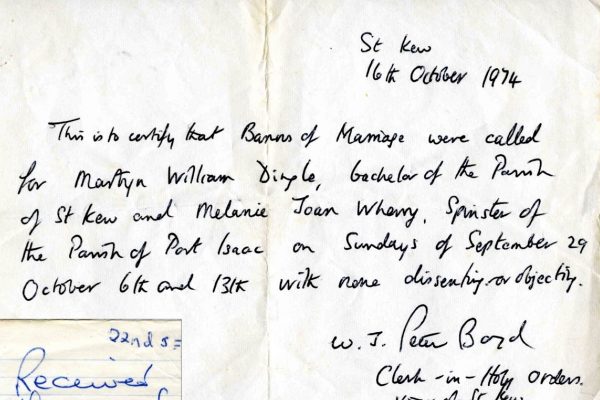 St Kew
16th October 1974
This is to certify that Banns of Marriage were called
for Martyn William Dingle, bachelor of the Parish
of St Kew and Melanie Joan Wherry, Spinster of
the Parish of Port Isaac on Sundays of September 29
October 6th and 13th with none dissenting or objecting.
W. J. Peter Boyd
Clerk-in-Holy Orders.
of St Kew
22nd S
Received